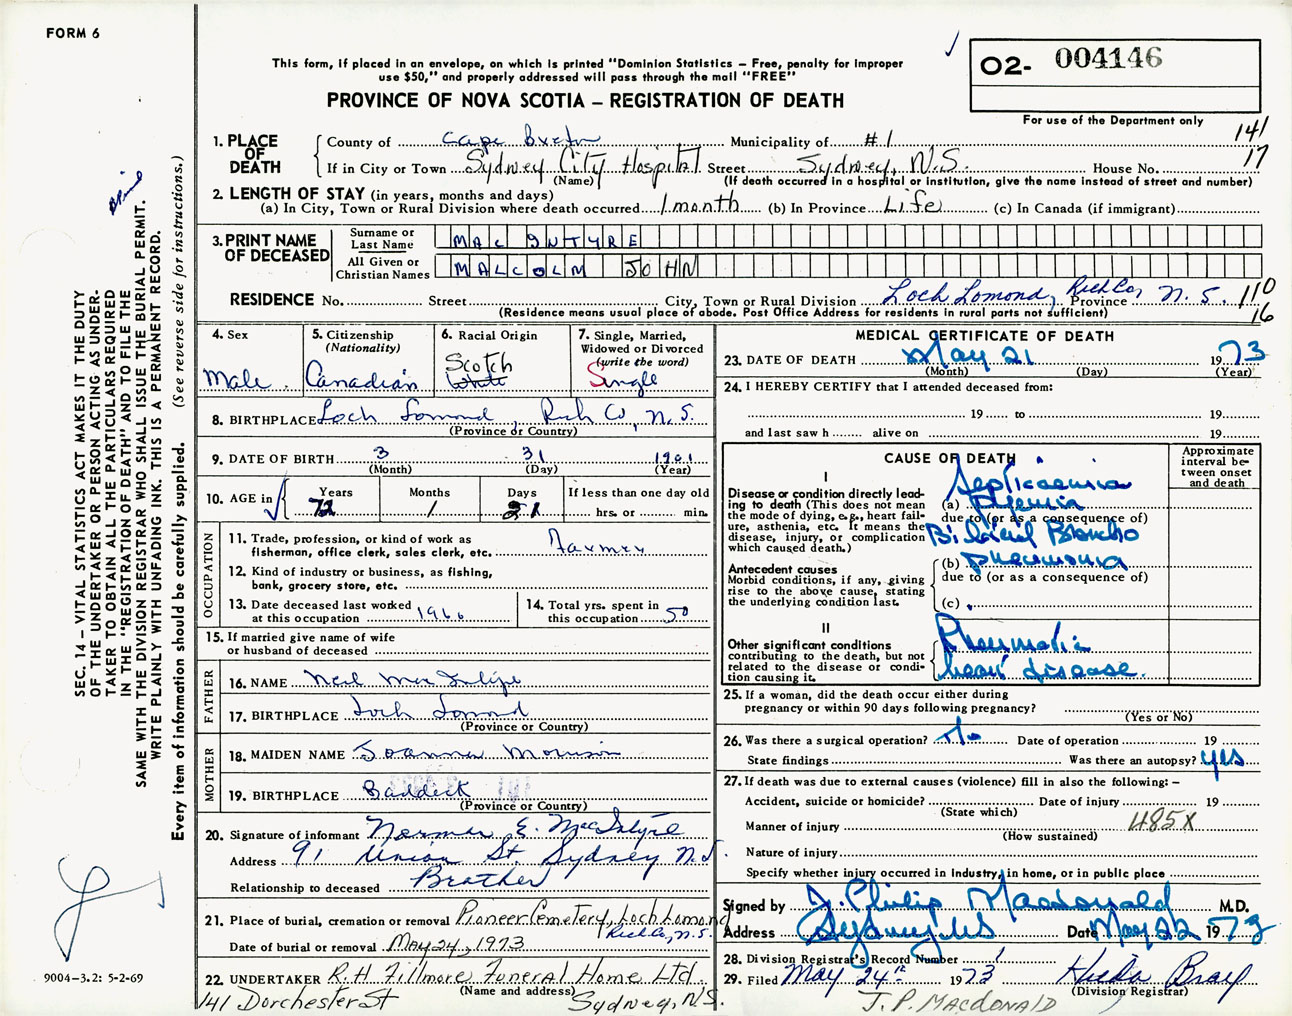 FORM 6
This form, if placed in an envelope, on which is printed "Dominion Statistics – Free, penalty for improper
use $50," and properly addressed will pass through the mail "FREE"
PROVINCE OF NOVA SCOTIA – REGISTRATION OF DEATH
02- 004146
For use of the Department only
141
17
1. PLACE OF DEATH
County of Cape Breton Municipality of #1
If in City or Town Sydney City Hospital Street Sydney, N.S. House No.
(Name) (If death occurred in a hospital or institution, give the name instead of street and number)
2. LENGTH OF STAY (in years, months and days)
(a) In City, Town or Rural Division where death occurred 1 month (b) In Province Life (c) In Canada (if immigrant)
3. PRINT NAME OF DECEASED
Surname or Last Name MAC INTYRE
All Given or Christian Names MALCOLM JOHN
RESIDENCE No. Street City, Town or Rural Division Loch Lomond, Rich Co, Province N.S. 110
16
(Residence means usual place of abode. Post Office Address for residents in rural parts not sufficient)
4. Sex
Male.
5. Citizenship
(Nationality)
Canadian
6. Racial Origin
Scotch
White
7. Single, Married,
Widowed or Divorced
(write the word)
Single
8. BIRTHPLACE Loch Lomond, Rich Co, N.S.
(Province or Country)
9. DATE OF BIRTH 3 31 1901
(Month) (Day) (Year)
10. AGE in
Years Months Days If less than one day old
72 1 21 hrs. or min.
OCCUPATION
11. Trade, profession, or kind of work as
fisherman, office clerk, sales clerk, etc. Farmer
12. Kind of industry or business, as fishing,
bank, grocery store, etc.
13. Date deceased last worked
at this occupation 1966
14. Total yrs. spent in
this occupation 50
15. If married give name of wife
or husband of deceased
FATHER
16. NAME Neil MacIntyre
17. BIRTHPLACE Loch Lomond
(Province or Country)
MOTHER
18. MAIDEN NAME Joanna Morrison
19. BIRTHPLACE Baddeck
(Province or Country)
20. Signature of informant Norman E. MacIntyre
Address 91 Union St. Sydney N.S.
Relationship to deceased Brother
21. Place of burial, cremation or removal Pioneer Cemetery, Loch Lomond
Rich Co, N.S.
Date of burial or removal May 24, 1973
22. UNDERTAKER R.H. Fillmore Funeral Home Ltd.
(Name and address)
141 Dorchester St Sydney, N.S.
MEDICAL CERTIFICATE OF DEATH
23. DATE OF DEATH May 21 1973
(Month) (Day) (Year)
24. I HEREBY CERTIFY that I attended deceased from:
19 to 19
and last saw h alive on 19
CAUSE OF DEATH
Approximate
interval be-
tween onset
and death
I
Disease or condition directly lead-
ing to death (This does not mean
the mode of dying, e.g., heart fail-
ure, asthenia, etc. It means the
disease, injury, or complication
which caused death.)
Septicaemia
(a) Pyemia
due to (or as a consequence of)
Bilateral Broncho
(b) pneumonia
due to (or as a consequence of)
(c)
Antecedent causes
Morbid conditions, if any, giving
rise to the above cause, stating
the underlying condition last.
II
Other significant conditions
contributing to the death, but not
related to the disease or condi-
tion causing it.
Rheumatic
heart disease.
25. If a woman, did the death occur either during
pregnancy or within 90 days following pregnancy?
(Yes or No)
26. Was there a surgical operation? No Date of operation 19
State findings Was there an autopsy? Yes
27. If death was due to external causes (violence) fill in also the following: –
Accident, suicide or homicide? Date of injury 19
(State which)
Manner of injury 485X
(How sustained)
Nature of injury
Specify whether injury occurred in Industry, in home, or in public place
Signed by J. Philip Macdonald M.D.
Address Sydney NS Date May 22 1973
28. Division Registrar's Record Number
29. Filed May 24th 1973 Hilda Bray
(Division Registrar)
J.P. MACDONALD
SEC. 14 – VITAL STATISTICS ACT MAKES IT THE DUTY
OF THE UNDERTAKER OR PERSON ACTING AS UNDER-
TAKER TO OBTAIN ALL THE PARTICULARS REQUIRED
IN THE "REGISTRATION OF DEATH" AND TO FILE THE
SAME WITH THE DIVISION REGISTRAR WHO SHALL ISSUE THE BURIAL PERMIT.
WRITE PLAINLY WITH UNFADING INK. THIS IS A PERMANENT RECORD.
Every item of information should be carefully supplied. (See reverse side for instructions.)
9004-3.2: 5-2-69